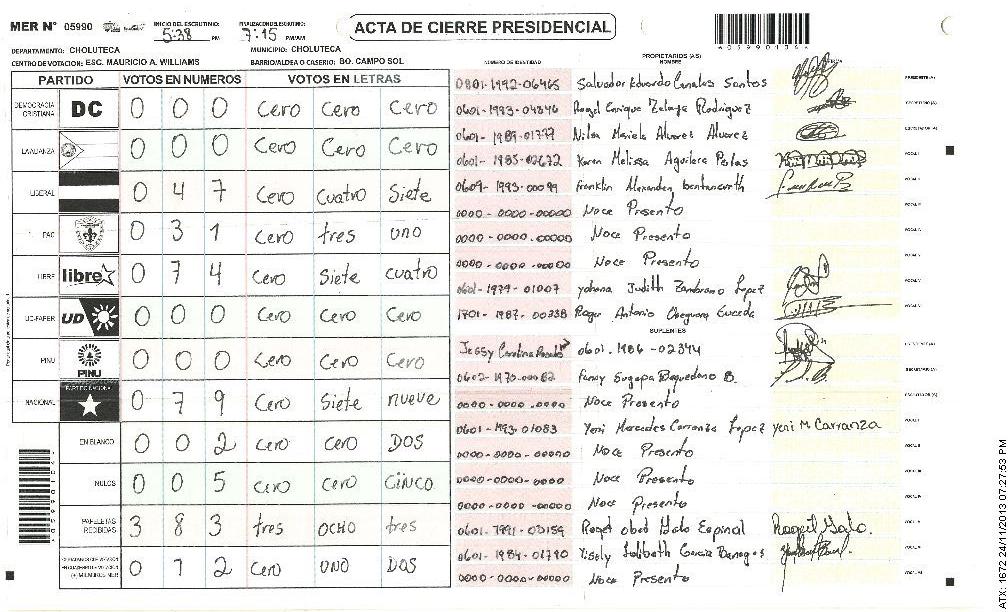 MER Nº 05990 INICIO DEL ESCRUTINIO: 5:38 PM FINALIZACION ESCRUTINIO: 7:15 PM/AM ACTA DE CIERRE PRESIDENCIAL
DEPARTAMENTO: CHOLUTECA MUNICIPIO: CHOLUTECA
CENTRO DE VOTACION: ESC. MAURICIO A. WILLIAMS BARRIO/ALDEA O CASERIO: BO. CAMPO SOL
PARTIDO VOTOS EN NUMEROS VOTOS EN LETRAS NUMERO DE IDENTIDAD PROPIETARIOS (AS) NOMBRE
DEMOCRACIA CRISTIANA DC 0 0 0 Cero Cero Cero
LA ALIANZA 0 0 0 Cero Cero Cero
LIBERAL 0 4 7 Cero Cuatro Siete
PAC 0 3 1 Cero tres uno
LIBRE libre 0 7 4 Cero Siete cuatro
UD-FAPER UD 0 0 0 Cero Cero Cero
PINU PINU 0 0 0 Cero Cero Cero
NACIONAL PARTIDO NACIONAL 0 7 9 Cero Siete nueve
EN BLANCO 0 0 2 Cero Cero DOS
NULOS 0 0 5 Cero Cero CiNCO
PAPELETAS RECIBIDAS 3 8 3 tres OCHO tres
(+) MIEMBROS MER 0 1 2 Cero UNO DOS
0801-1992-06465 Salvador Eduardo Canales Santos PRESIDENTE (A)
0601-1993-04846 Rogel Enrique Zelaya Rodriguez SECRETARIO (A)
0601-1989-01777 Nilsa Mariela Alvarez Alvarez ESCRUTADOR (A)
0601-1985-02672 Karen Melissa Aguilera Perlas VOCAL I
0609-1993-00099 Franklin Alexander
0000-0000-00000 Noce Presento
0000-0000-00000 Noce Presento
0000-0000-00000 Noce Presento
0601-1979-01007 Yohana Judith Zambrano Lopez
1701-1987-00338 Roger Antonio Oseguera Euceda
SUPLENTES
Jessy Carolina 0601-1986-02344
0602-1970-00082 Fanny Suyapa Baquedano B.
0000-0000-0000 Noce Presento
0601-1993-01083 Yeni Mercedes Carranza Lopez Yeni M Carranza
0000-0000-00000 Noce Presento
0000-0000-00000 Noce Presento
0000-0000-00000 Noce Presento
0601-1991-03159 Roget obed Galo Espinal Roget Galo.
0601-1984-01790 Yisely Garcia Banegas
0000-0000-00000 Noce Presento
ATX: 1672 24/11/2013 07:27:53 PM